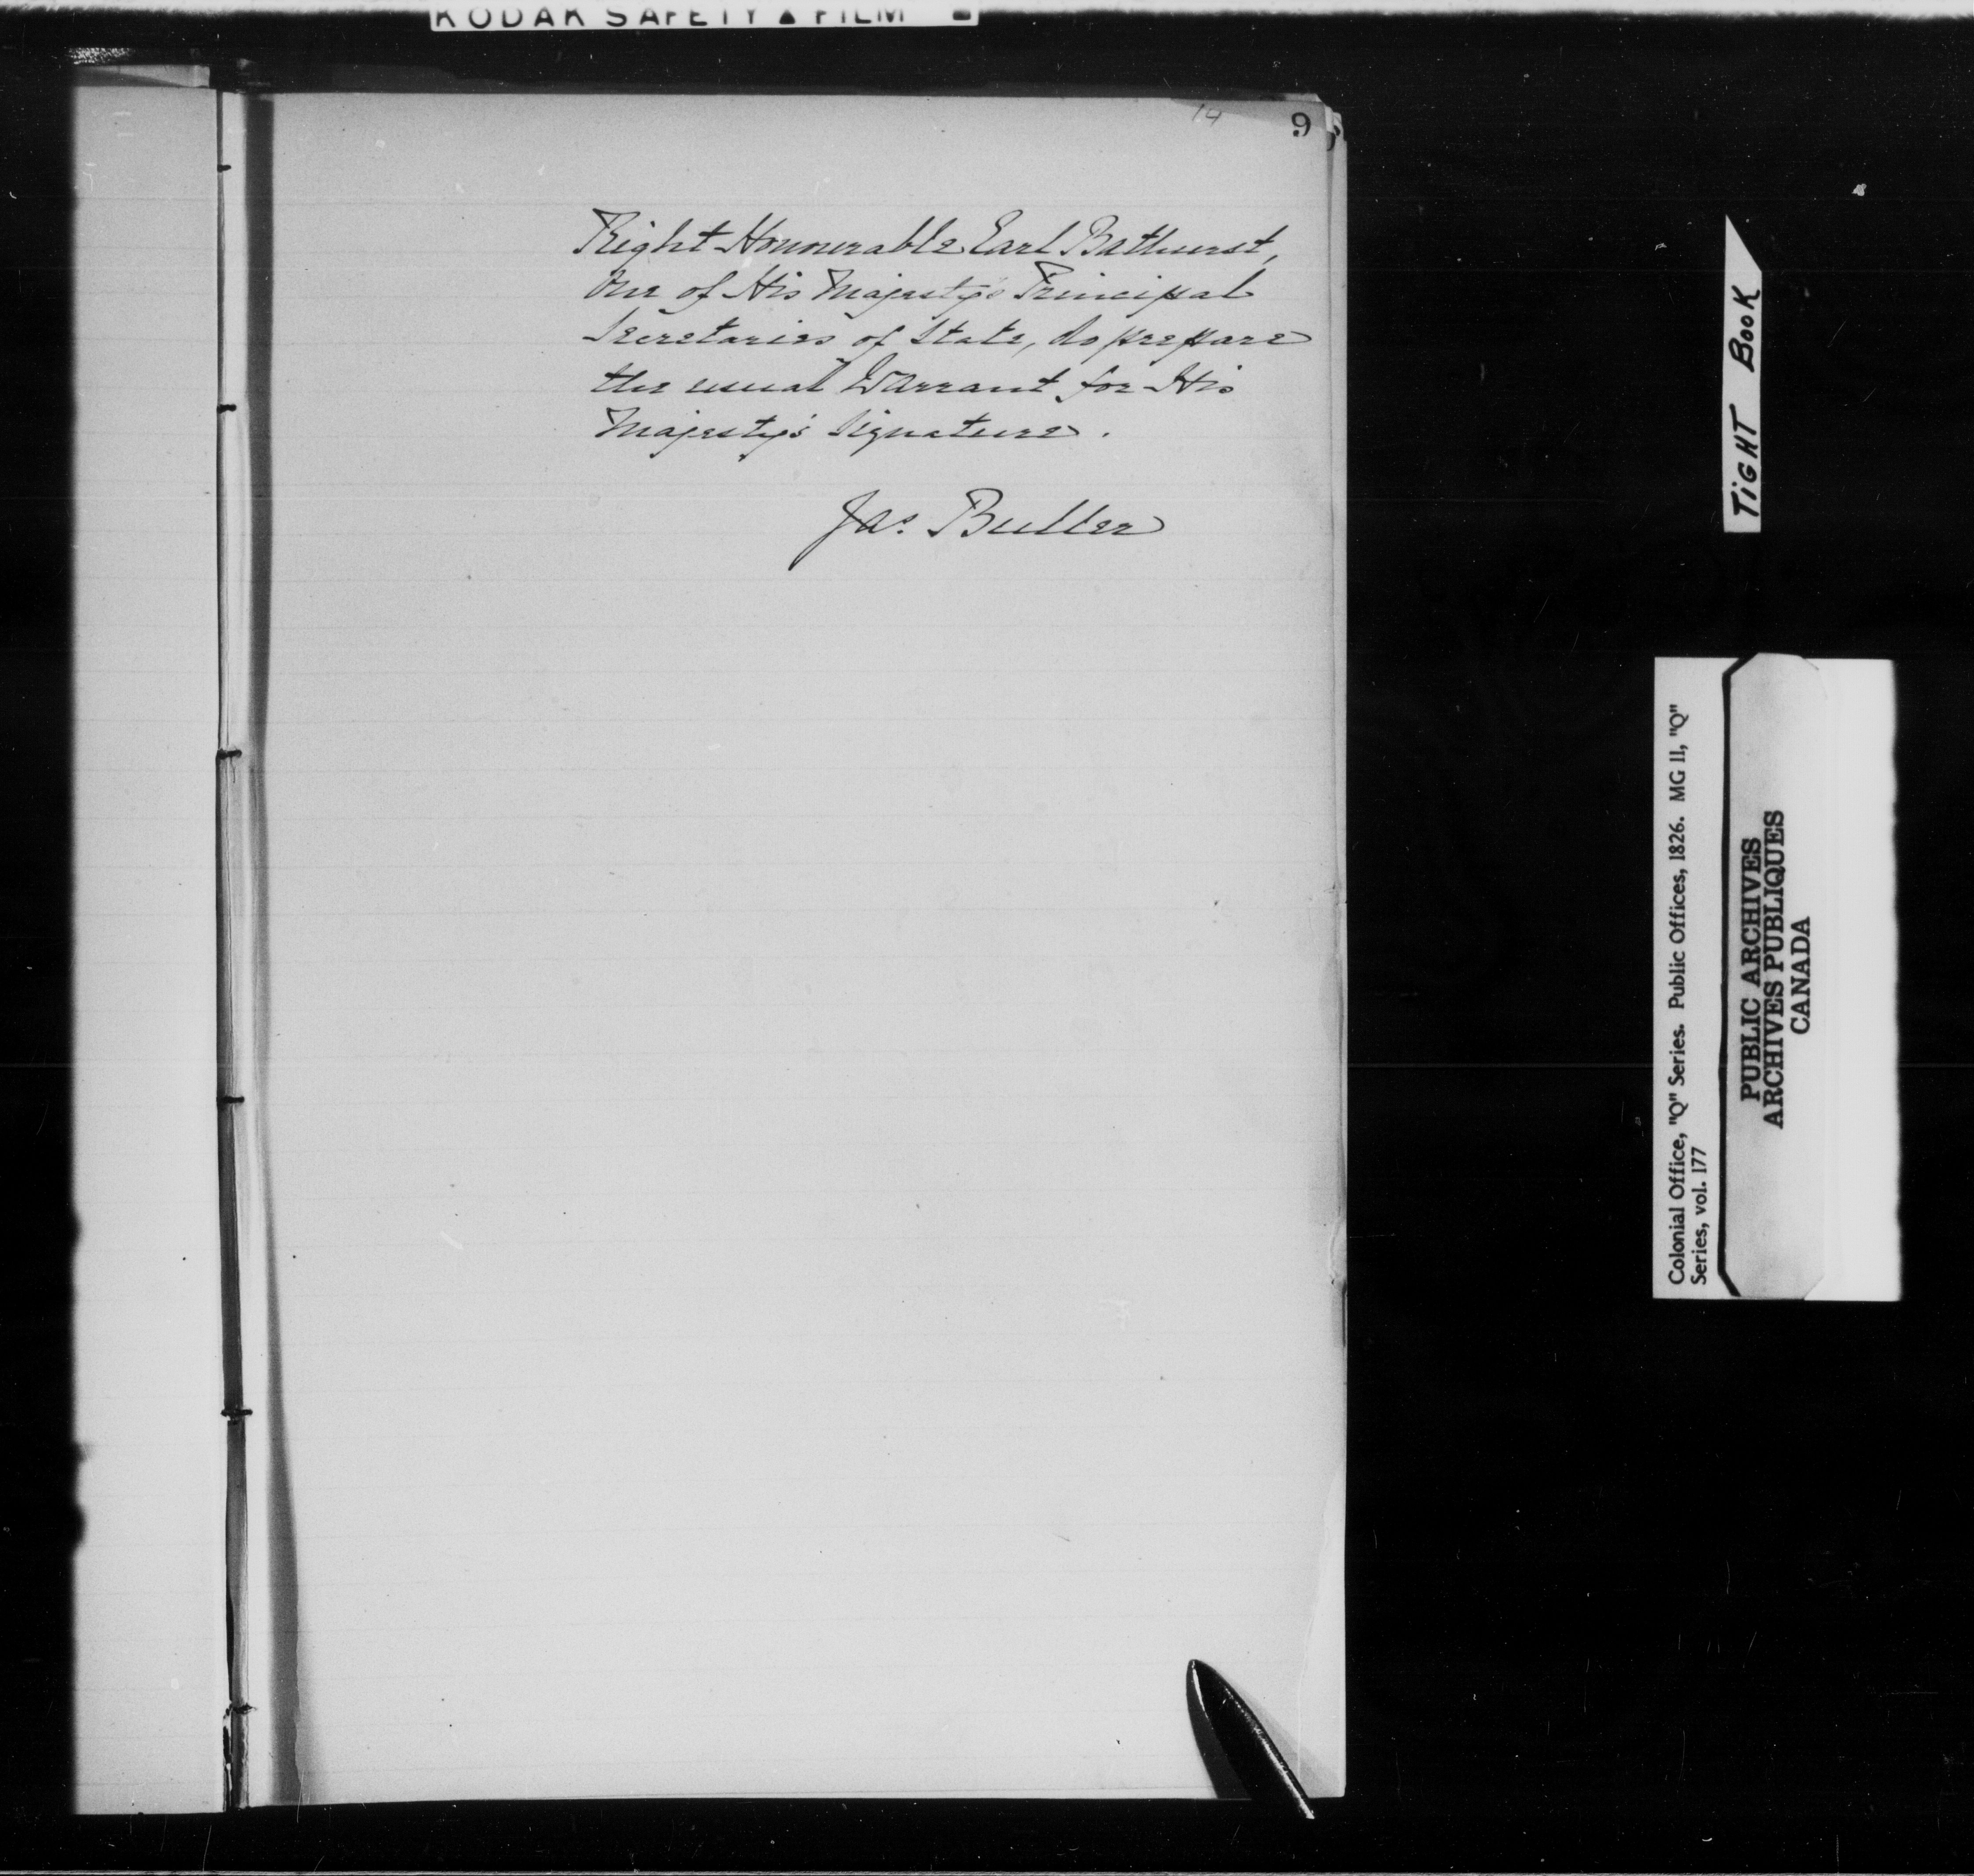 KODAK SAFETY ▲ FILM
14
9
Right Honourable Earl Bathurst,
One of His Majesty's Principal
Secretaries of State, do prepare
the usual Warrant for His
Majesty's Signature.
Jas. Buller
TiGHT BOOK
Colonial Office, "Q" Series. Public Offices, 1826. MG 11, "Q"
Series, vol. 177
PUBLIC ARCHIVES
ARCHIVES PUBLIQUES
CANADA